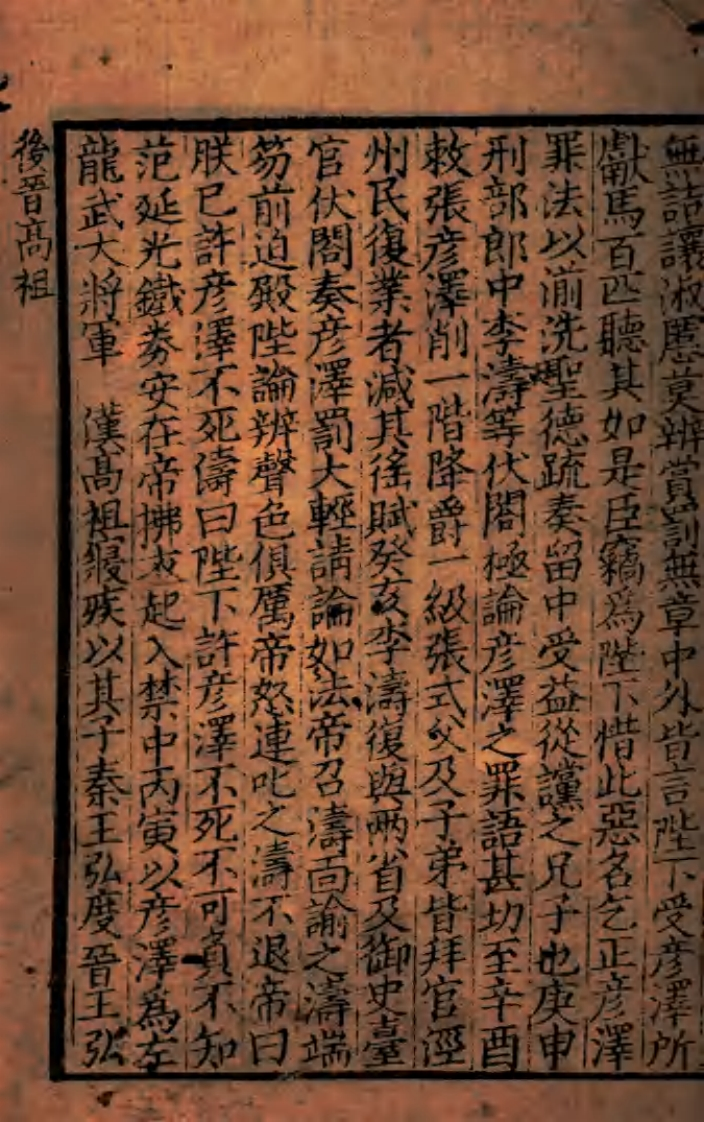 無詰讓淑慝莫辨賞罰無章中外皆言陛下受彦澤所
獻馬百匹聽其如是臣竊爲陛下惜此惡名乞正彦澤
罪法以湔洗聖德疏奏留中受益從讜之兄子也庚申
刑部郎中李濤等伏閤極論彦澤之罪語甚切至辛酉
敕張彦澤削一階降爵一級張式父及子弟皆拜官涇
州民復業者減其徭賦癸亥李濤復與兩省及御史臺
官伏閤奏彦澤罰大輕請論如法帝召濤面諭之濤端
笏前迫殿陛論辨聲色俱厲帝怒連叱之濤不退帝曰
朕已許彦澤不死濤曰陛下許彦澤不死不可負不知
范延光鐵券安在帝拂衣起入禁中丙寅以彦澤爲左
龍武大將軍 漢高祖寢疾以其子秦王弘度晉王弘
後晉高祖